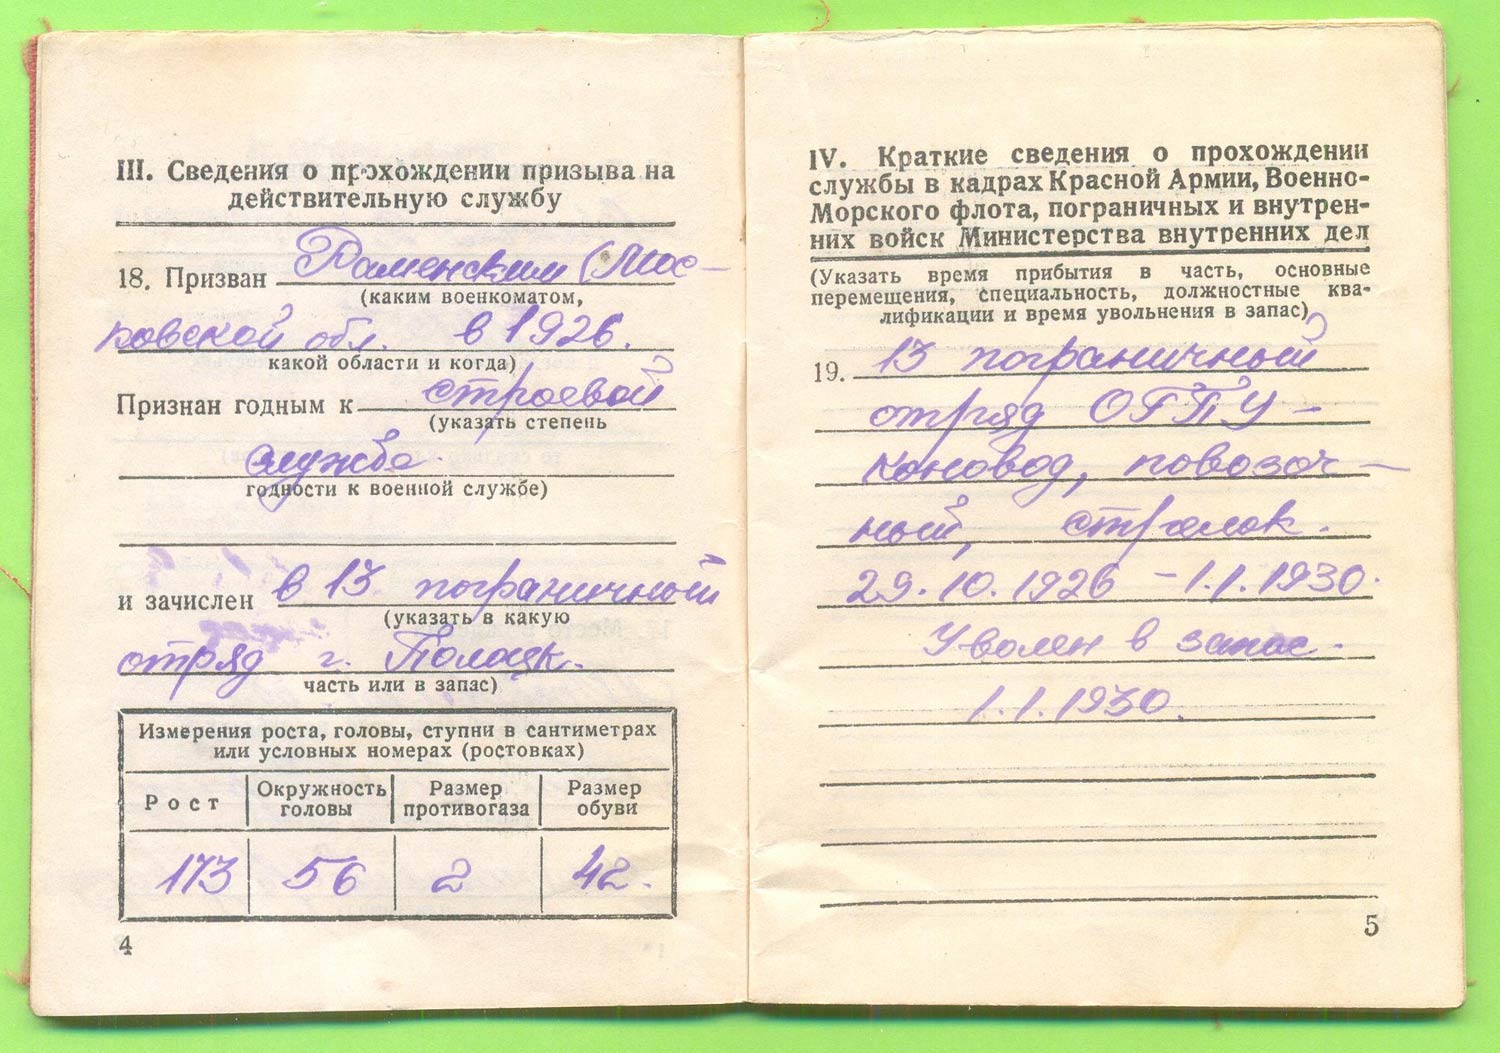 III. Сведения о прохождении призыва на
действительную службу
18. Призван Раменским (Мос-
(каким военкоматом,
ковской обл. в 1926.
какой области и когда)
Признан годным к строевой
(указать степень
службе
годности к военной службе)
и зачислен в 13 пограничный
(указать в какую
отряд г. Полоцк.
часть или в запас)
Измерения роста, головы, ступни в сантиметрах
или условных номерах (ростовках)
Рост Окружность головы Размер противогаза Размер обуви
173 56 2 42.
4
IV. Краткие сведения о прохождении
службы в кадрах Красной Армии, Военно-
Морского флота, пограничных и внутрен-
них войск Министерства внутренних дел
(Указать время прибытия в часть, основные
перемещения, специальность, должностные ква-
лификации и время увольнения в запас)
19. 13 пограничный
отряд ОГПУ -
коновод, повозоч-
ный, стрелок.
29.10.1926 - 1.1.1930.
Уволен в запас.
1.1.1930.
5